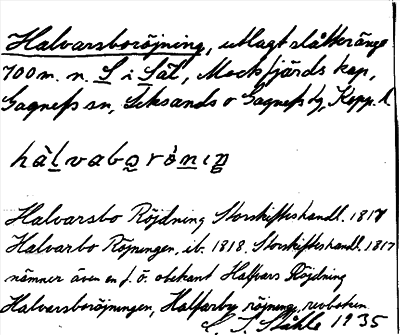 Halvarsboröjning, utlagt slåtteränge
700 m. n. S i Säl, Mockfjärds kap,
Gagnefs sn, Leksands o Gagnefs tg, Kopp. l
hàlvaboróniŋ
Halvarsbo Röjdning Storskifteshandl. 1817
Halvarbo Röjningen, ib. 1818. Storskifteshandl. 1817
nämner även en f. ö. obekant Halfvars Röjdning
Halvarsboröjningen, Halfarbo röjning, revboken.
C. I. Ståhle 1935